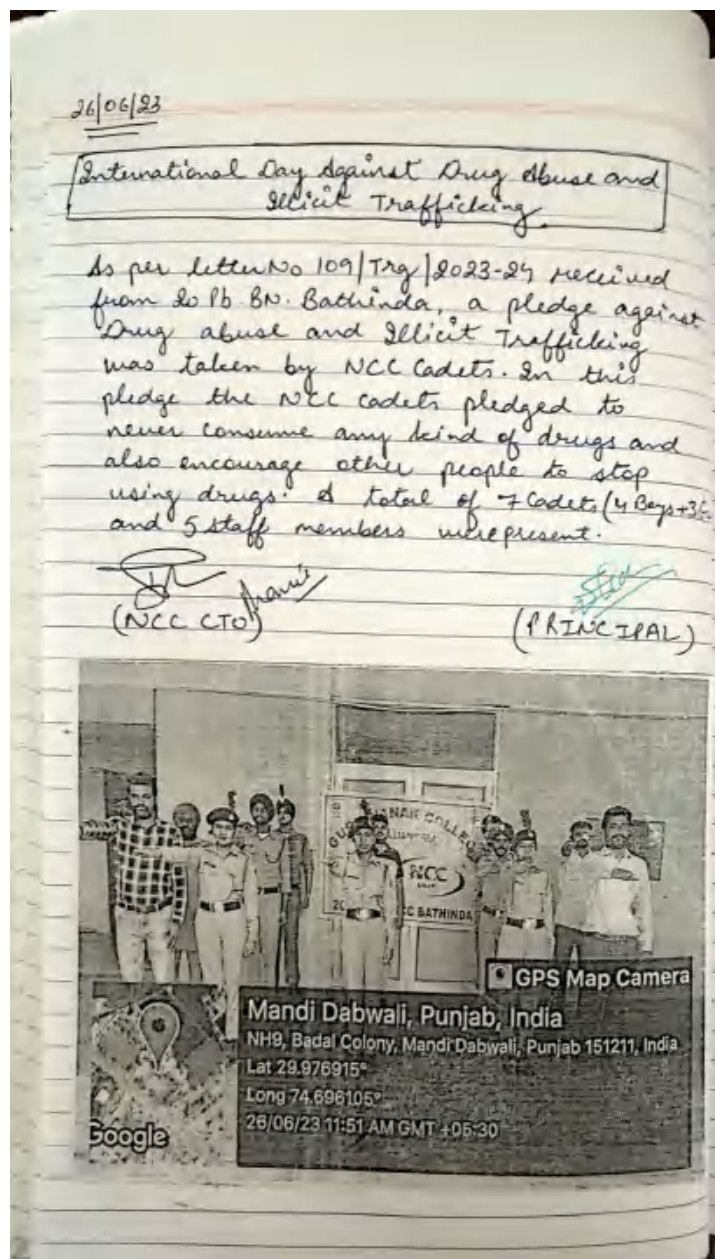 26/06/23
International Day Against Drug Abuse and
Illicit Trafficking.
As per letter No 109/Trg/2023-24 received
from 20 Pb BN. Bathinda, a pledge against
Drug abuse and Illicit Trafficking
was taken by NCC Cadets. In this
pledge the NCC cadets pledged to
never consume any kind of drugs and
also encourage other people to stop
using drugs. A total of 7 Cadets (4 Boys+3
and 5 staff members were present.
(NCC CTO)
(PRINCIPAL)
NANAK COLLEGE
NCC
BATHINDA
GPS Map Camera
Mandi Dabwali, Punjab, India
NH9, Badal Colony, Mandi Dabwali, Punjab 151211, India
Lat 29.976915°
Long 74.696105°
26/06/23 11:51 AM GMT +05:30
Google